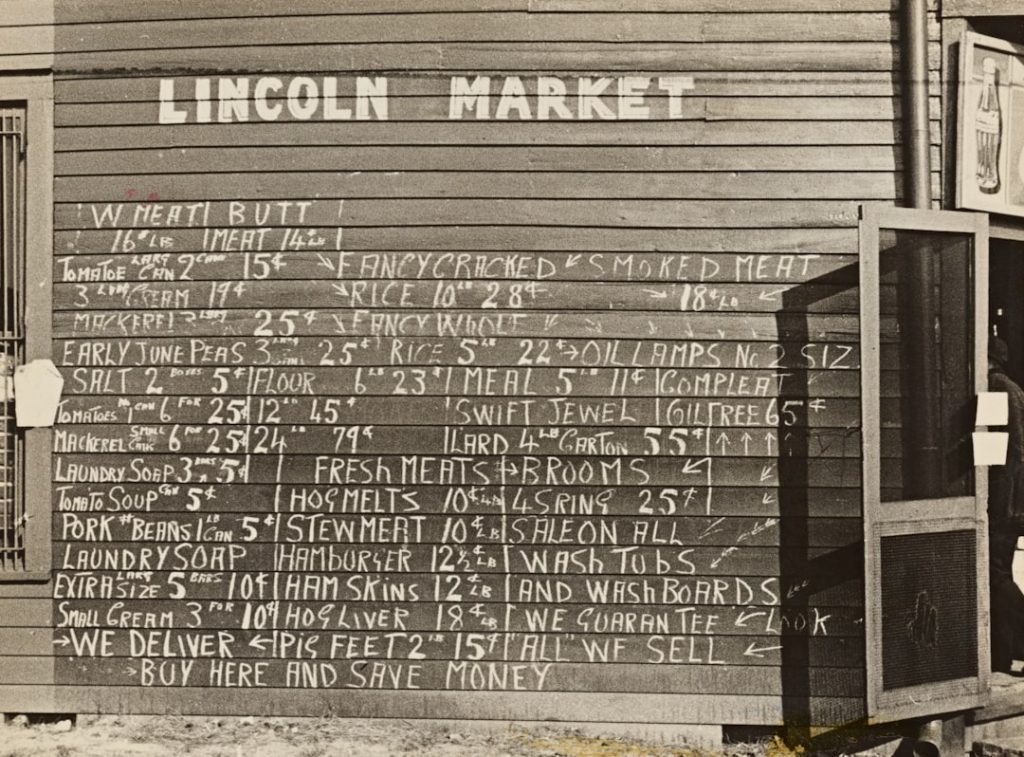 LINCOLN MARKET
W MEAT | BUTT
16¢ LB | MEAT 14¢ LB
TOMATOE LARG CAN 2 CANS 15¢ → FANCY CRACKED ← SMOKED MEAT
3 CREAM 19¢ → RICE 10 LB 28¢ → 18¢ LB ←
MACKEREL 25¢ FANCY WHOLE
EARLY JUNE PEAS 3 25¢ RICE 5 LB 22¢ → OIL LAMPS No 2 SIZ
SALT 2 BOXES 5¢ | FLOUR 6 LB 23¢ | MEAL 5 LB 11¢ | COMPLEAT
TOMATOES CAN 6 FOR 25¢ | 12 LB 45¢ SWIFT JEWEL | OIL FREE 65¢
MACKEREL SMALL CANS 6 FOR 25¢ | 24 LB 79¢ | LARD 4 LB CARTON 55¢ | ↑ ↑ ↑ ↑
LAUNDRY SOAP 3 BARS 5¢ | FRESH MEATS → BROOMS
TOMATO SOUP CAN 5¢ | HOG MELTS 10¢ LB | 4 SRING 25¢
PORK # BEANS 1 LB CAN 5¢ | STEW MEAT 10¢ LB | SALE ON ALL
LAUNDRY SOAP | HAMBURGER 12½¢ LB | WASH TUBS
EXTRA LARG SIZE 5 BARS 10¢ | HAM SKINS 12¢ LB | AND WASH BOARDS
SMALL CREAM 3 FOR 10¢ | HOG LIVER 18¢ LB | WE GUARANTEE ← LOOK
→ WE DELIVER ← | PIG FEET 2 LB 15¢ | "ALL" WE SELL ←
→ BUY HERE AND SAVE MONEY